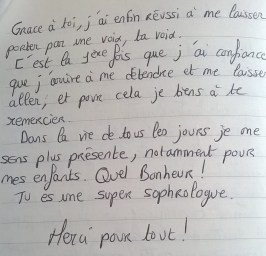 Grace à toi, j'ai enfin réussi à me laisser
porter par une voix, ta voix.
C'est la 1ère fois que j'ai confiance
que j'arrive à me détendre et me laisser
aller, et pour cela je tiens à te
remercier.
Dans la vie de tous les jours je me
sens plus présente, notamment pour
mes enfants. Quel Bonheur !
Tu es une super sophrologue.
Merci pour tout !